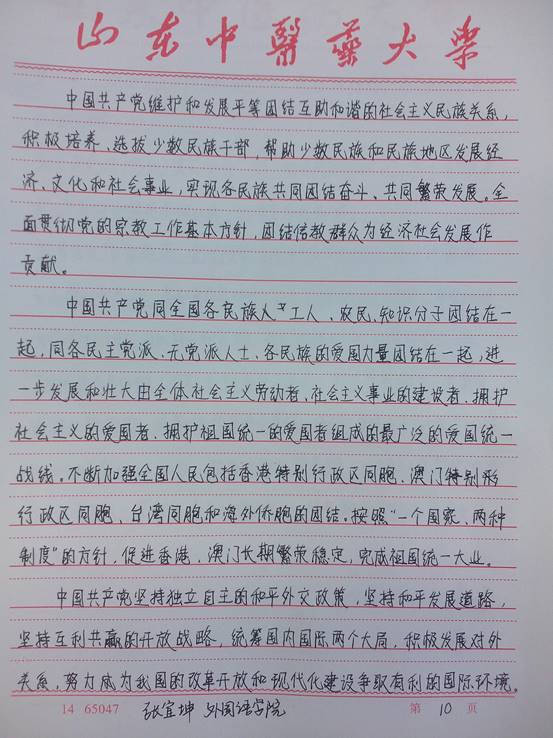 山东中医药大学
中国共产党维护和发展平等团结互助和谐的社会主义民族关系，
积极培养、选拔少数民族干部，帮助少数民族和民族地区发展经
济、文化和社会事业，实现各民族共同团结奋斗、共同繁荣发展。全
面贯彻党的宗教工作基本方针，团结信教群众为经济社会发展作
贡献。
中国共产党同全国各民族人工人、农民、知识分子团结在一
起，同各民主党派、无党派人士、各民族的爱国力量团结在一起，进
一步发展和壮大由全体社会主义劳动者、社会主义事业的建设者、拥护
社会主义的爱国者、拥护祖国统一的爱国者组成的最广泛的爱国统一
战线。不断加强全国人民包括香港特别行政区同胞、澳门特别形
行政区同胞、台湾同胞和海外侨胞的团结。按照“一个国家，两种
制度”的方针，促进香港、澳门长期繁荣稳定，完成祖国统一大业。
中国共产党坚持独立自主的和平外交政策，坚持和平发展道路，
坚持互利共赢的开放战略，统筹国内国际两个大局，积极发展对外
关系，努力成为我国的改革开放和现代化建设争取有利的国际环境。
14 65047 张宜坤 外国语学院 第 10 页